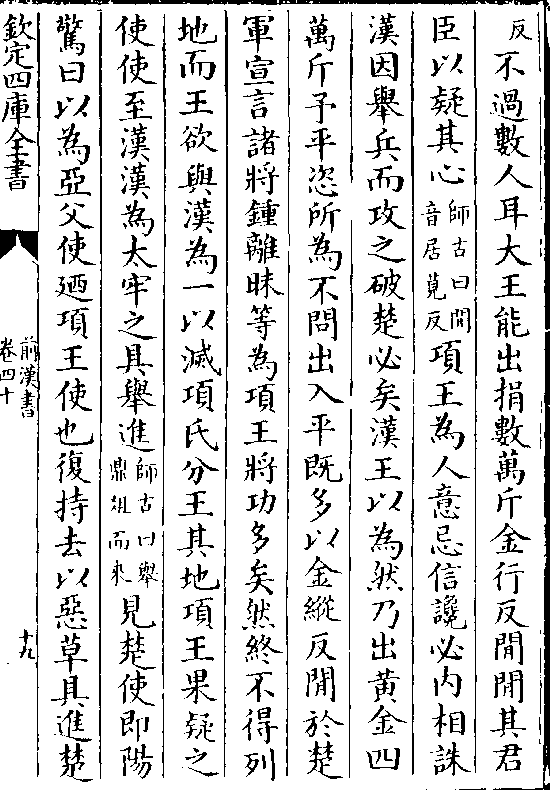 反不過數人耳大王能出捐數萬斤金行反間間其君
臣以疑其心師古曰間音居莧反項王為人意忌信讒必内相誅
漢因舉兵而攻之破楚必矣漢王以為然乃出黄金四
萬斤予平恣所為不問出入平既多以金縱反間於楚
軍宣言諸將鍾離昧等為項王將功多矣然終不得列
地而王欲與漢為一以滅項氏分王其地項王果疑之
使使至漢漢為太牢之具舉進師古曰舉鼎俎而來見楚使即陽
驚曰以為亞父使廼項王使也復持去以惡草具進楚
欽定四庫全書
前漢書
卷四十
十九